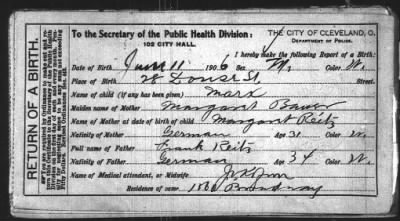 To the Secretary of the Public Health Division:
102 CITY HALL.
THE CITY OF CLEVELAND, O.
DEPARTMENT OF POLICE.
I hereby make the following Report of a Birth.
Date of Birth June 11 1906 Sex M. Color W.
Place of Birth 28 Street.
Name of child (if any has been given) Marx
Maiden name of Mother Margaret Bauer
Name of Mother at date of birth of child Margaret Reitz
Nativity of Mother German Age 31 Color W.
Full name of Father Frank Reitz
Nativity of Father German Age 34 Color W.
Name of Medical attendant, or Midwife
Residence of same Broadway
RETURN OF A BIRTH.